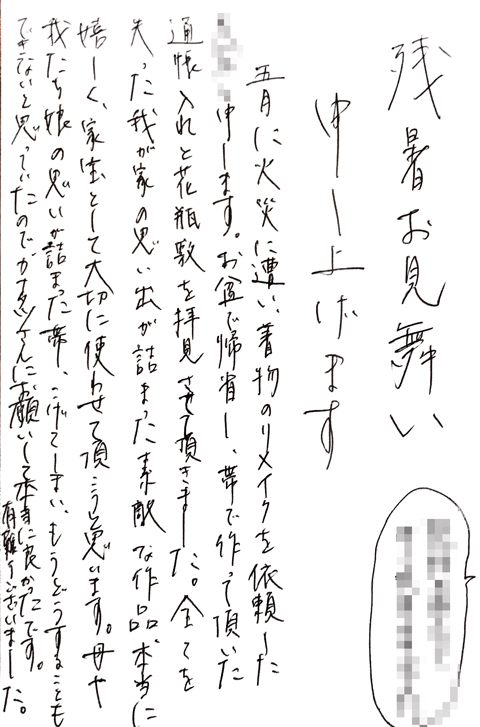 残暑お見舞い
申し上げます
五月に火災に遭い、着物のリメイクを依頼した
申します。お盆で帰省し、帯で作って頂いた
通帳入れと花瓶敷を拝見させて頂きました。全てを
失った我が家の思い出が詰まった素敵な作品が本当に
嬉しく、家宝として大切に使わせて頂こうと思います。母や
我たち娘の思いが詰まった帯、こげてしまい、もうどうすることも
できないと思っていたのでさんにお願いして本当に良かったです。
有難うございました。